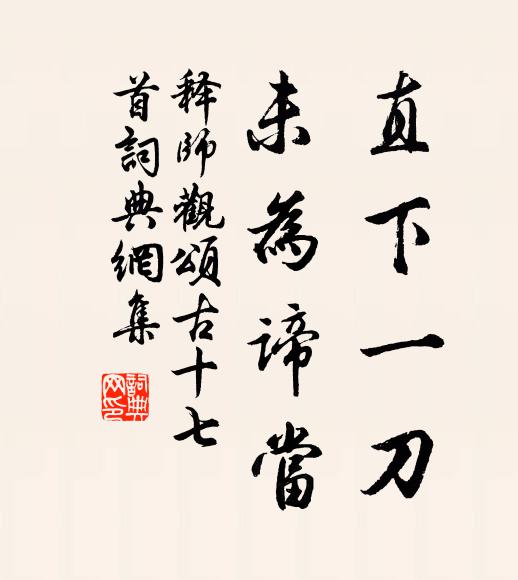 直下一刀
未為諦當
释師觀頌古十七
首詞典網集
詞典網印